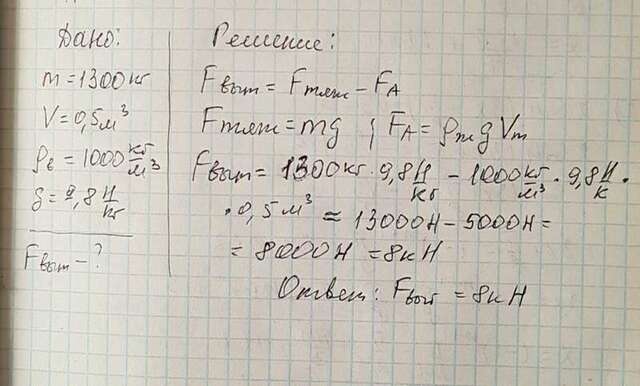 Дано:
m = 1300 кг
V = 0,5 м³
ρв = 1000 кг/м³
g = 9,8 Н/кг
Fвыт - ?
Решение:
Fвыт = Fтяж - FА
Fтяж = mg ; FА = ρж g Vт
Fвыт = 1300 кг · 9,8 Н/кг - 1000 кг/м³ · 9,8 Н/к ·
· 0,5 м³ ≈ 13000 Н - 5000 Н =
= 8000 Н = 8 кН
Ответ: Fвыт = 8 кН